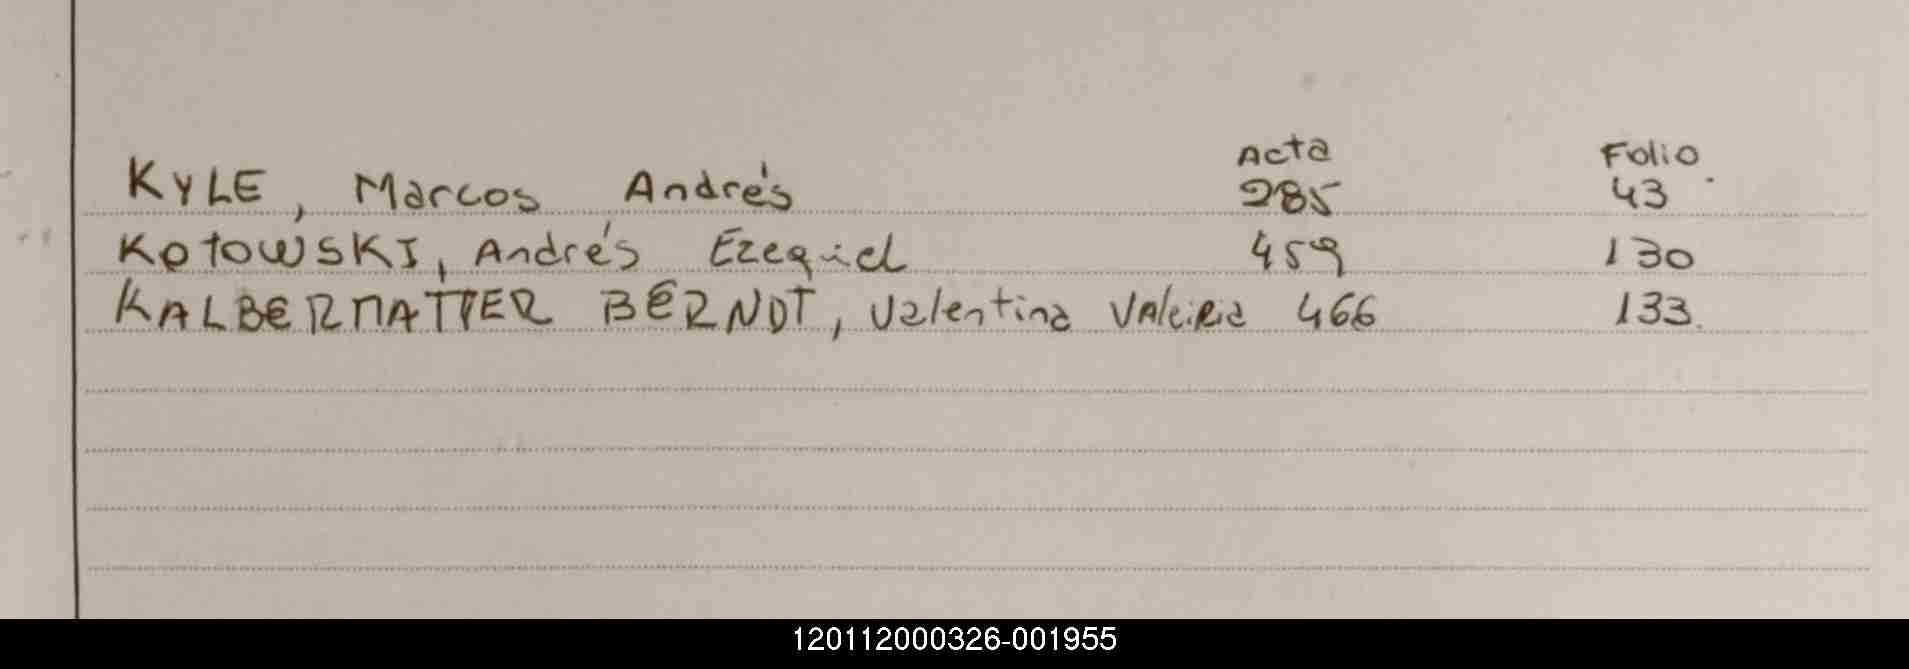 Acta Folio
KYLE, Marcos Andrés 285 43
KOTOWSKI, Andrés Ezequiel 459 130
KALBERMATTER BERNDT, Valentina 466 133.
120112000326-001955